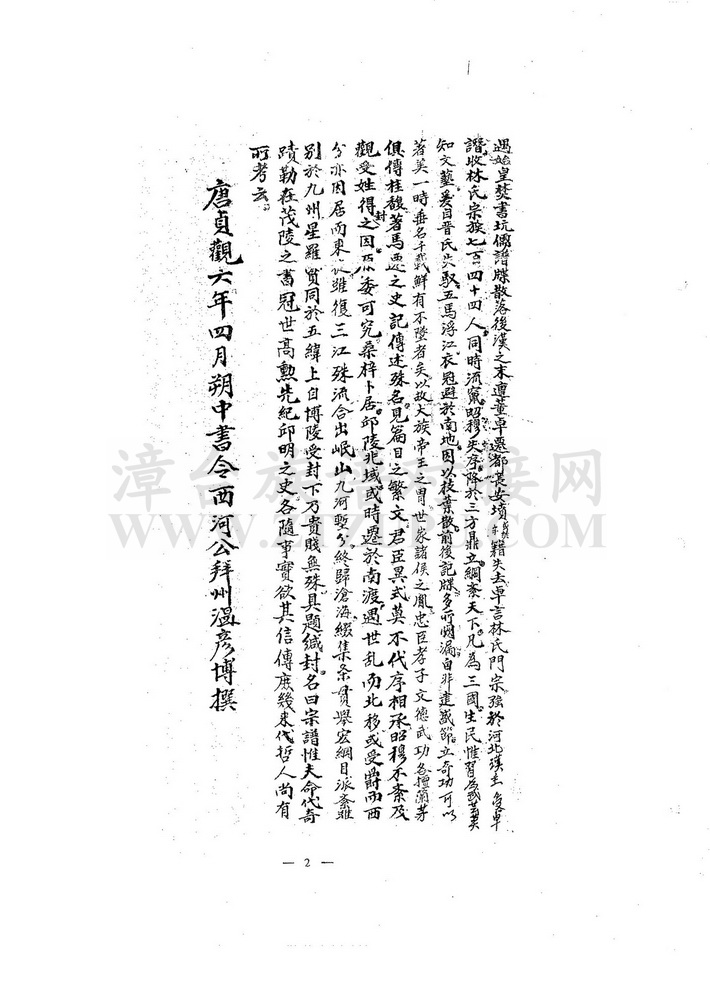 遇始皇焚書坑儒譜牒散落後漢之末遭董卓遷都長安墳籍失去卓言林氏門宗強於河北漢主受卓
譖收林氏宗族七百四十四人同時流竄昭穆失序降於三方鼎立綱紊天下凡為三國生民惟習為武藝莫
知文藝爰自晉氏失馭五馬浮江衣冠避於南地因以枝葉散前後記牒多所闕漏自非建盛節立奇功可以
著美一時垂名千載鮮有不墜者矣以故大族帝王之胄世家諸侯之胤忠臣孝子文德武功各擅蘭芽
俱傳桂馥著馬遷之史記傳述殊名見篇目之繁文君臣異式莫不代序相承昭穆不紊及
觀受姓得封之因原委可究桑梓卜居邱陵兆域或時遷於南渡遇世乱而北移或受爵而西
分亦因居而東 雖復三江殊流合出岷山九河暫分終歸滄海綴集条貫舉宏綱目派紊雖
別於九州星羅貫同於五緯上自博陵受封下乃貴賤無殊具題緘封名曰宗譜惟夫命代奇
蹟勒在茂陵之書冠世高勳先紀邱明之史各隨事實欲其信傳庶幾來代哲人尚有
所考云
唐貞觀六年四月朔中書令西河公拜州溫彥博撰
— 2 —
漳台族譜对接网